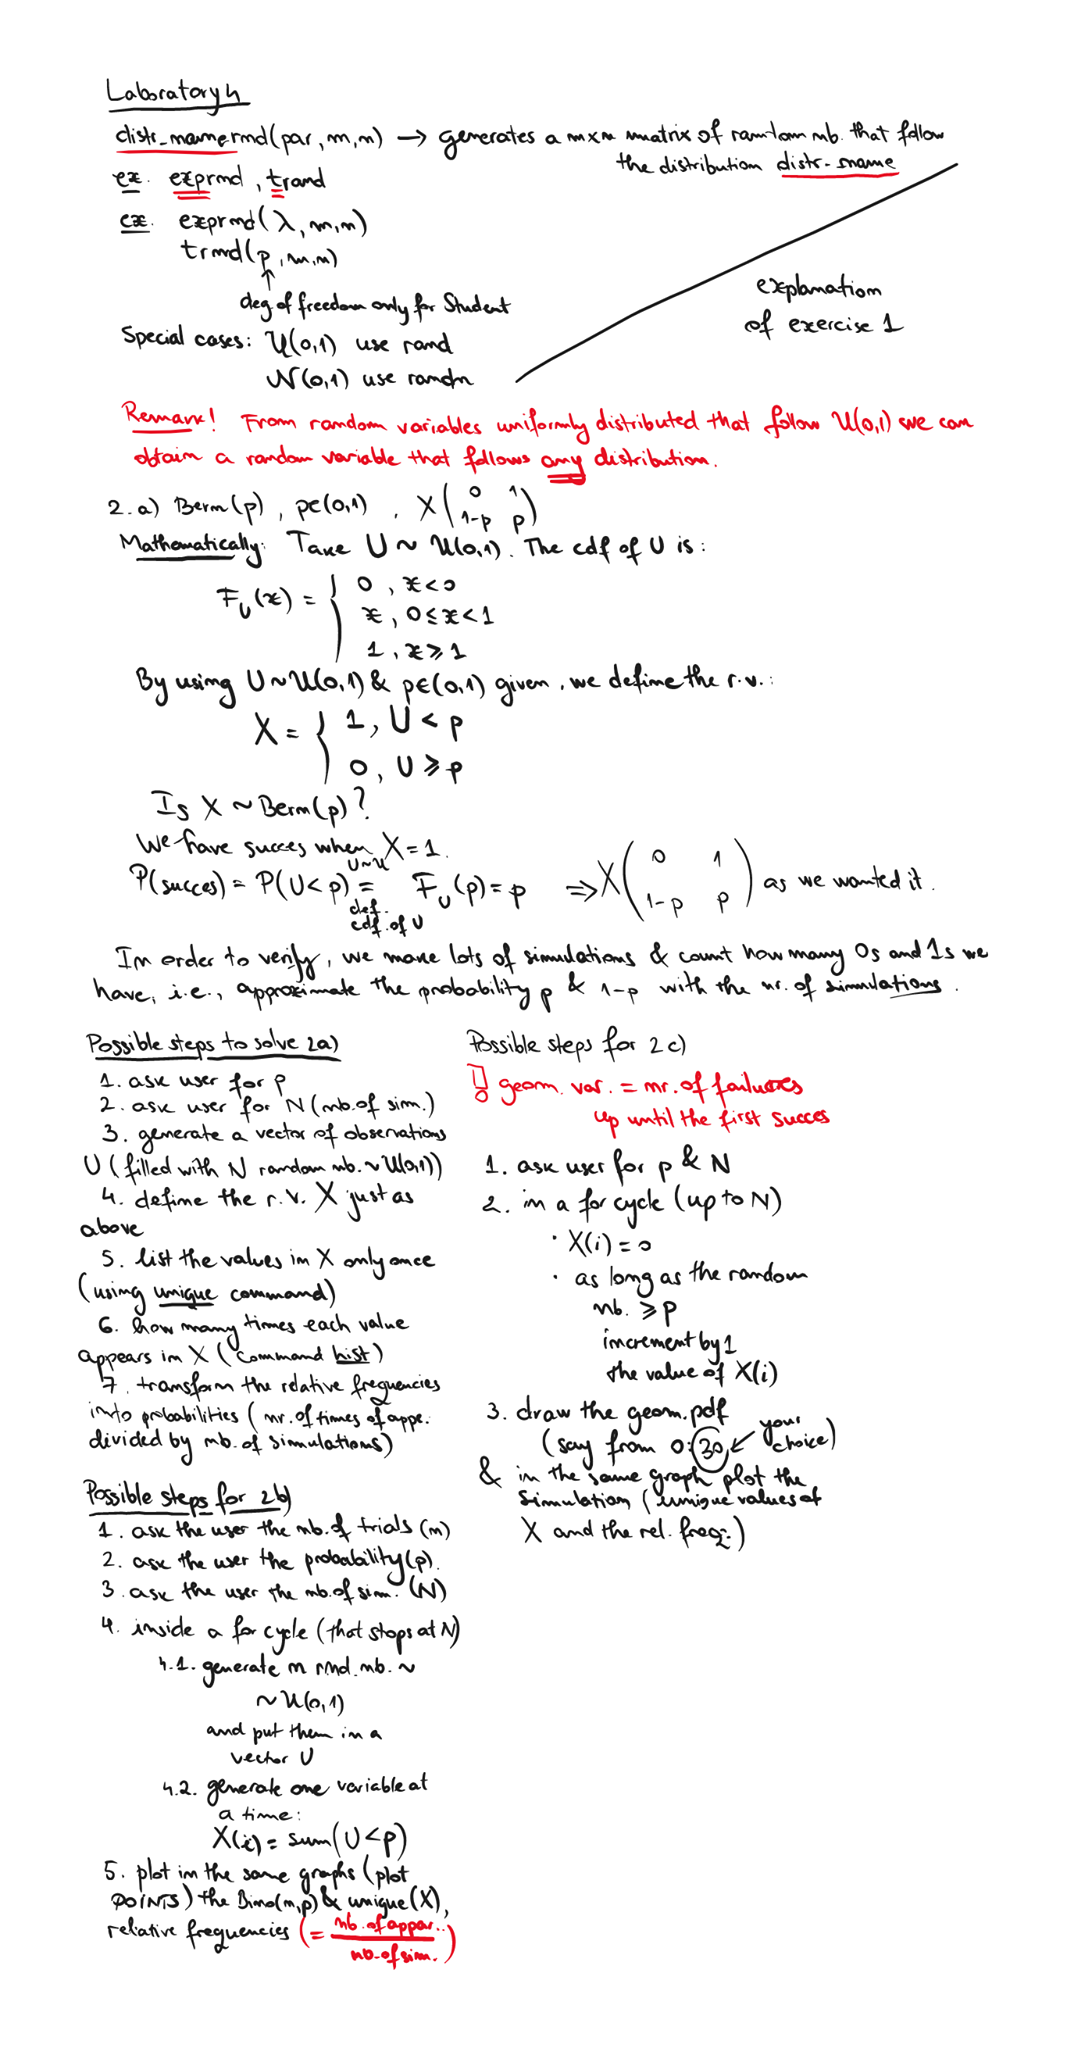 Laboratory 4
distr_name rnd(par, m, n) → generates a m×n matrix of random nb. that follow
the distribution distr_name
ex. exprnd, trand
ex. exprnd(λ, m, n)
trnd(p, m, n)
↑
deg. of freedom only for Student
Special cases: U(0,1) use rand
N(0,1) use randn
explanation
of exercise 1
Remark! From random variables uniformly distributed that follow U(0,1) we can
obtain a random variable that follows any distribution.
2. a) Bern(p), p∈(0,1), X(0 1
1-p p)
Mathematically: Take U ~ U(0,1). The cdf of U is:
F_U(x) = { 0, x<0
x, 0≤x<1
1, x≥1
By using U~U(0,1) & p∈(0,1) given, we define the r.v.:
X = { 1, U < p
0, U ≥ p
Is X ~ Bern(p)?
We have succes when X=1.
P(succes) = P(U<p) = F_U(p) = p ⇒ X(0 1
1-p p) as we wanted it.
U~U
def.
cdf. of U
In order to verify, we make lots of simulations & count how many 0s and 1s we
have, i.e., approximate the probability p & 1-p with the nr. of simulations.
Possible steps to solve 2a)
1. ask user for p
2. ask user for N (nb. of sim.)
3. generate a vector of observations
U (filled with N random nb. ~ U(0,1))
4. define the r.v. X just as
above
5. list the values in X only once
(using unique command)
6. how many times each value
appears in X (command hist)
7. transform the relative frequencies
into probabilities (nr. of times of appe.
divided by nb. of simulations)
Possible steps for 2b)
1. ask the user the nb. of trials (n)
2. ask the user the probability (p).
3. ask the user the nb. of sim. (N)
4. inside a for cycle (that stops at N)
4.1. generate n rnd. nb. ~
~ U(0,1)
and put them in a
vector U
4.2. generate one variable at
a time:
X(i) = sum(U<p)
5. plot in the same graphs (plot
POINTS) the Bino(n,p) & unique(X),
relative frequencies (= nb. of appar..
nb. of sim.)
Possible steps for 2c)
! geom. var. = nr. of failures
up until the first succes
1. ask user for p & N
2. in a for cycle (up to N)
· X(i) = 0
· as long as the random
nb. ≥ p
increment by 1
the value of X(i)
3. draw the geom. pdf
(say from 0:30, ← your
choice)
& in the same graph plot the
simulation (unique values of
X and the rel. freq.)